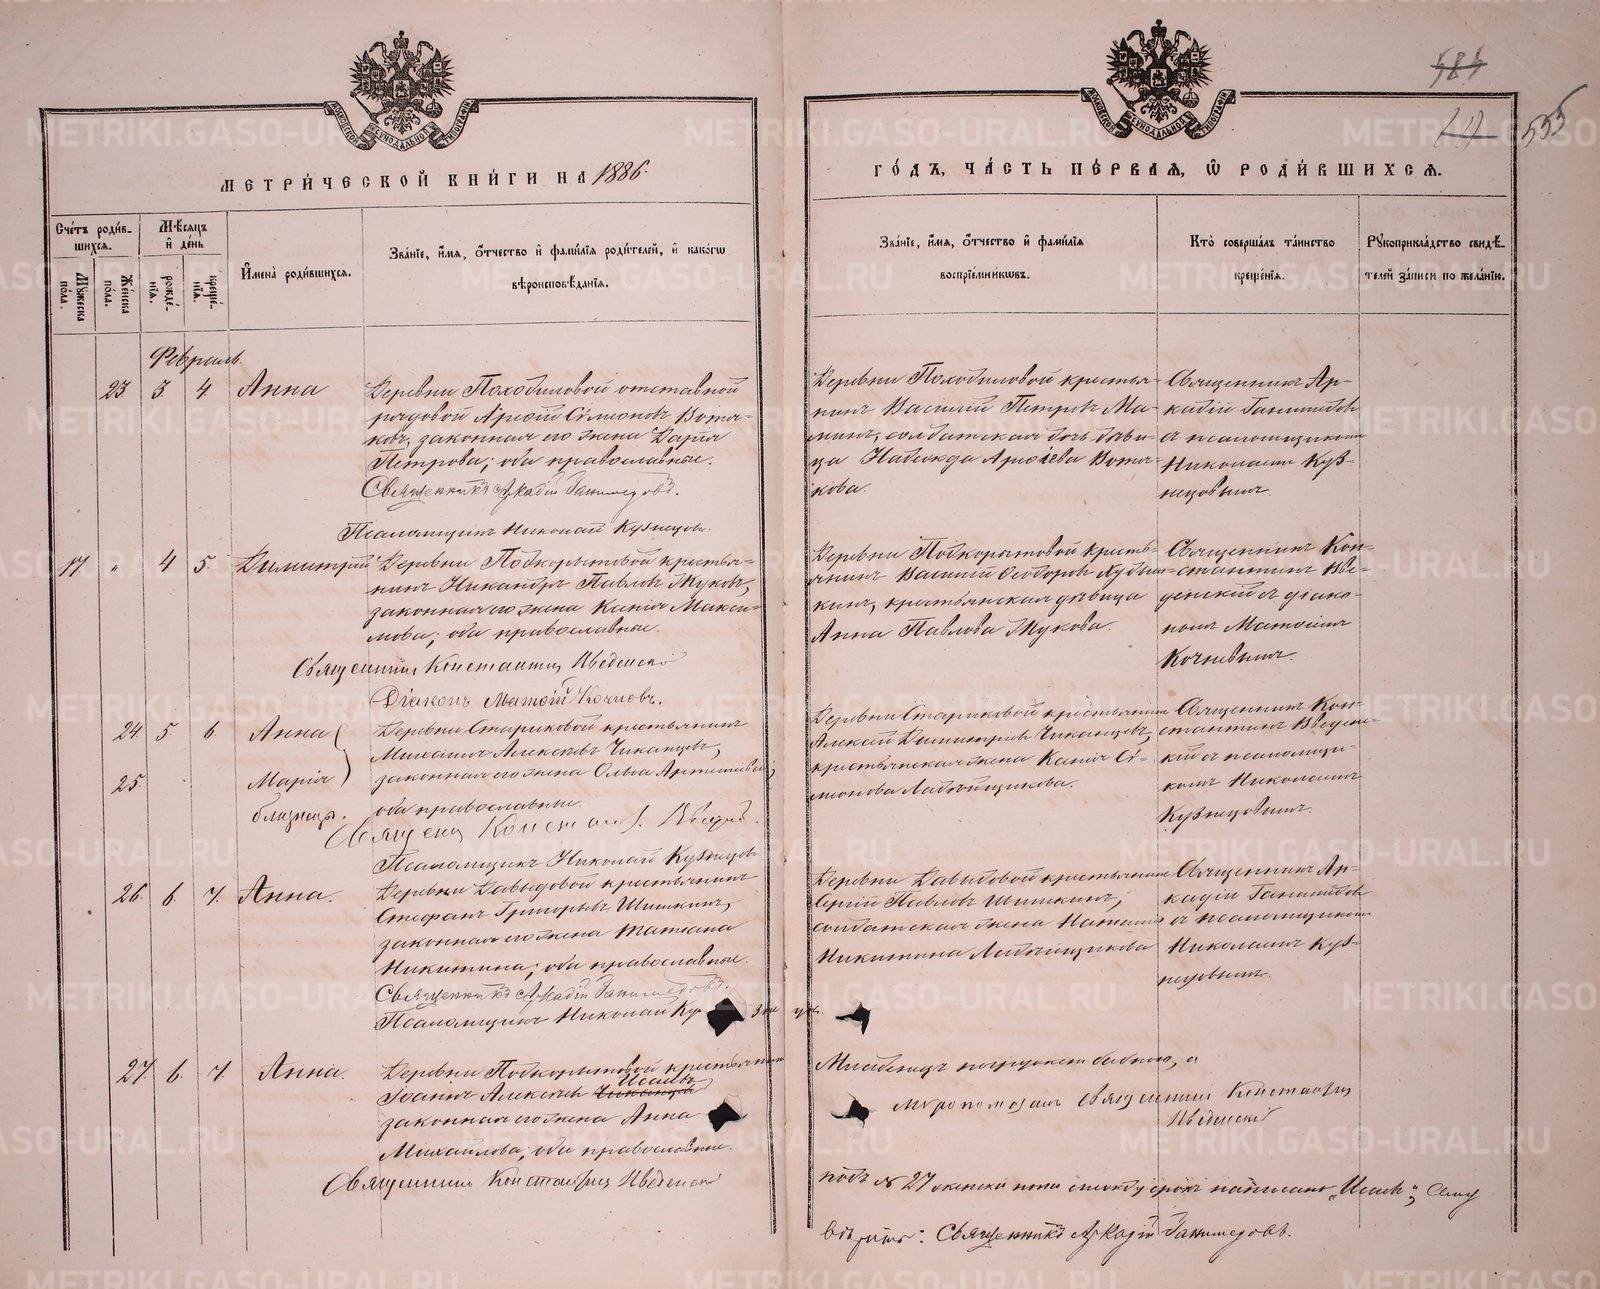 МЕТРИ́ЧЕСКОЙ КНИ́ГИ НА 1886.
Сче́тъ роди́в-
шихся.
Мѣ́сяцъ
и҆ де́нь
Мꙋ́жеска
по́ла.
Же́нска
по́ла.
рожде́-
нїя.
креще́-
нїя.
И҆мена̀ роди́вшихся.
Зва́нїе, и҆́мя, ѻ҆́тчество и҆ фами́лїя роди́телей, и҆ како́гѡ
вѣроисповѣ́данїя.
Февраль.
23. 3. 4 Анна
Деревни Походиловой отставной
рядовой Арсѳiй Сѵмеоновъ Вотя-
ковъ, законная его жена Дарiя
Петрова; оба православные.
Священникъ Аркадiй Ганимедовъ.
Псаломщикъ Николай Кузнецовъ.
17. " 4 5. Димитрий
Деревни Подкорытовой крестья-
нинъ Никандръ Павловъ Жуковъ,
законная его жена Ксенiя Макси-
мова; оба православные.
Священникъ Константинъ Введенскiй
Дiаконъ Матѳiй Кочневъ.
24. 5 6. Анна
25. Марiя
близнецы.
Деревни Стариковой крестьянинъ
Михаилъ Алексѣевъ Чиканцевъ,
законная его жена Ольга Артемiева;
оба православные.
Священ. Констант. Введенск.
Псаломщикъ Николай Кузнецовъ
26. 6. 7. Анна.
Деревни Давыдовой крестьянинъ
Стефанъ Григорьевъ Шишкинъ,
законная его жена Татiана
Никитина; оба православные.
Священникъ Аркадiй Ганимедовъ.
Псаломщикъ Николай Кузнецовъ.
27. 6. 7. Анна.
Деревни Подкорытовой крестьянинъ
Исаевъ
Iоаннъ Алексѣевъ Чиканцевъ
законная его жена Анна
Михаилова; оба православные.
Священникъ Константинъ Введенскiй
484
555
ГО́ДЪ, ЧА́СТЬ ПЕ́РВАЯ, Ѽ РОДИ́ВШИХСЯ.
Зва́нїе, и҆́мя, ѻ҆́тчество и҆ фами́лїя
воспрїе́мникѡвъ.
Кто̀ соверша́лъ та́инство
креще́нїя.
Рꙋкоприкла́дство свидѣ́-
телей за́писи по жела́нїю.
Деревни Походиловой крестья-
нинъ Василiй Петровъ Ма-
минъ, солдатская дочь дѣви-
ца Надежда Арсѳiева Вотя-
кова.
Священникъ Ар-
кадiй Ганимедовъ
съ псаломщикомъ
Николаемъ Куз-
нецовымъ.
Деревни Подкорытовой кресть-
янинъ Василiй Ѳеодоровъ
кинъ, крестьянская дѣвица
Анна Павлова Жукова.
Священникъ Кон-
стантинъ Вве-
денскiй съ дiако-
номъ Матѳiемъ
Кочневымъ.
Деревни Стариковой крестьянинъ
Алексiй Димитрiевъ Чиканцевъ,
крестьянская жена Ксенiя Сi-
меонова Лабѳищикова.
Священникъ Кон-
стантинъ Введенс-
кiй съ псаломщи-
комъ Николаемъ
Кузнецовымъ.
Деревни Давыдовой крестьянинъ
Сергiй Павловъ Шишкинъ,
солдатская жена
Никитина
Священникъ Ар-
кадiй Ганимедовъ
съ псаломщикомъ
Николаемъ Куз-
нецовымъ.
Младенецъ погруженъ бабкою, а
мѵропомазанъ Священникъ Константинъ
Введенскiй
подъ № 27 женска пола между строкъ написано „Исаевъ"; Сему
вѣрить: Священникъ Аркадiй Ганимедовъ.
METRIKI.GASO-URAL.RU